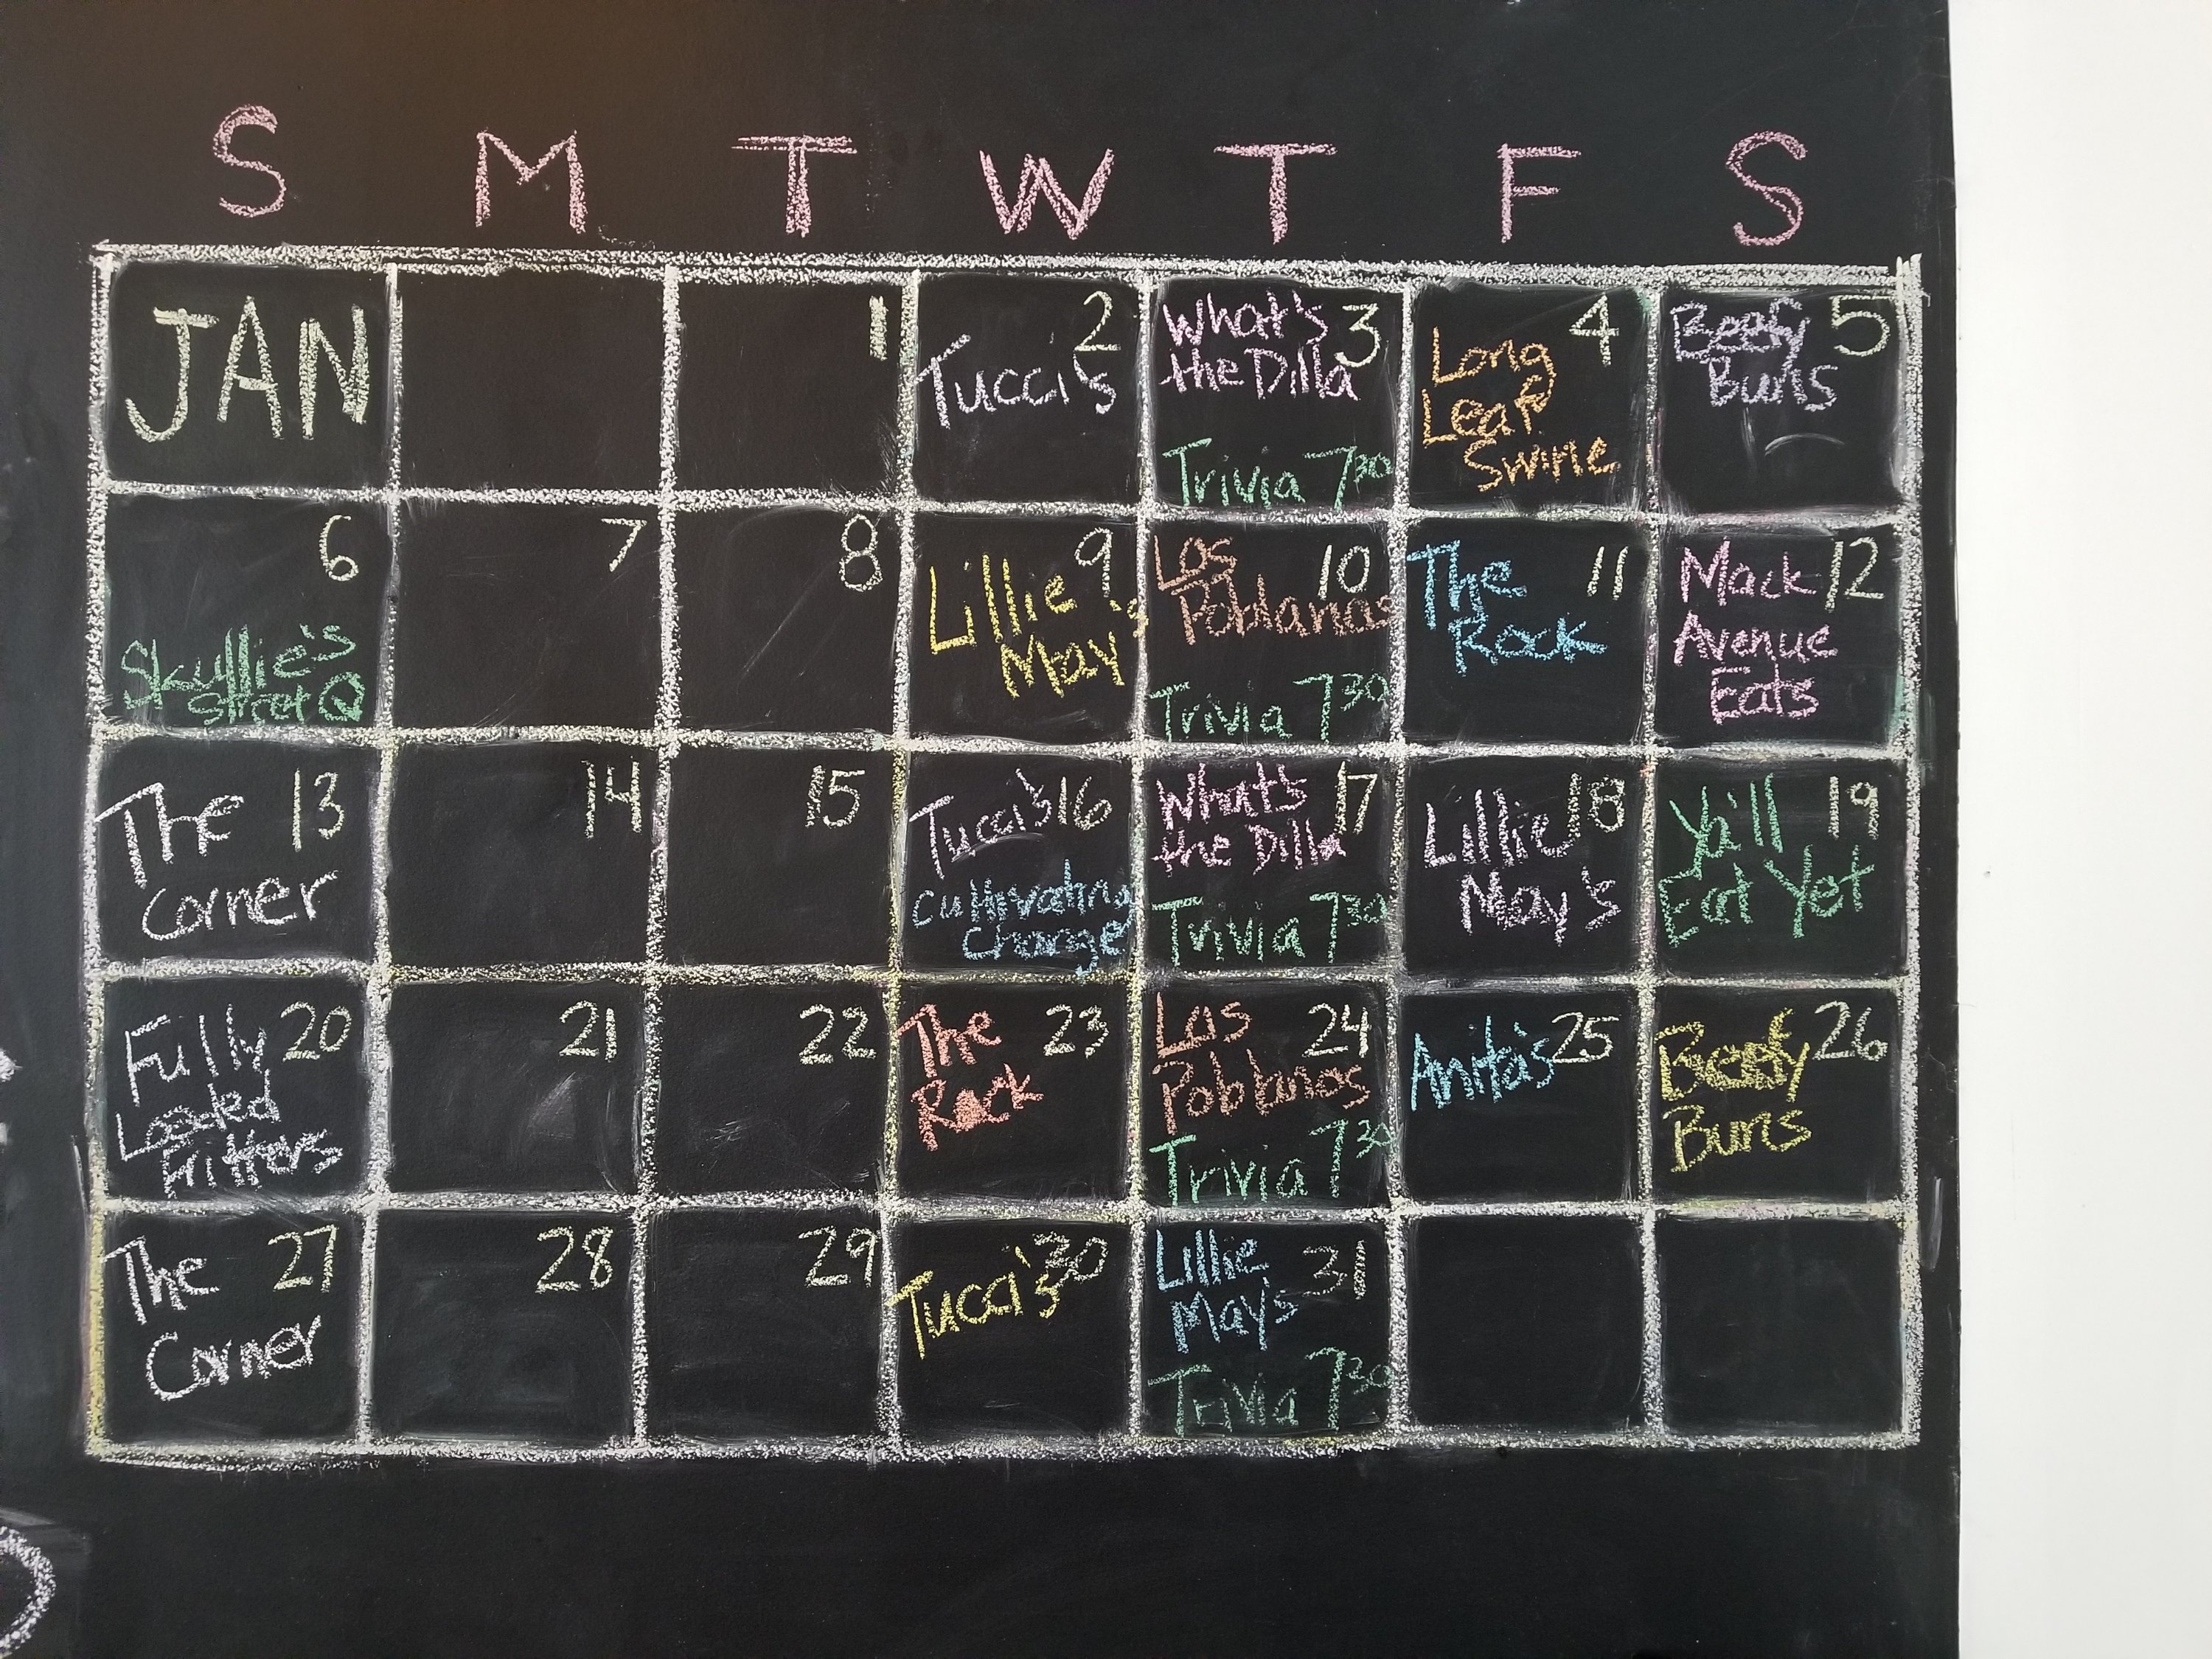 S M T W T F S
JAN
1
2
Tucci's
What's 3
the Dilla
Trivia 7³⁰
4
Long
Leaf
Swine
Beefy 5
Buns
6
Skullie's
Street Q
7
8
9
Lillie
May's
Los 10
Poblanos
Trivia 7³⁰
The 11
Rock
Mack 12
Avenue
Eats
The 13
Corner
14
15
Tucci's 16
Cultivating
Change
What's 17
the Dilla
Trivia 7³⁰
Lillie 18
May's
Ya'll 19
Eat Yet
Fully 20
Loaded
Fritters
21
22
The 23
Rock
Los 24
Poblanos
Trivia 7³⁰
Anita's 25
Beefy 26
Buns
The 27
Corner
28
29
Tucci's 30
Lillie 31
May's
Trivia 7³⁰